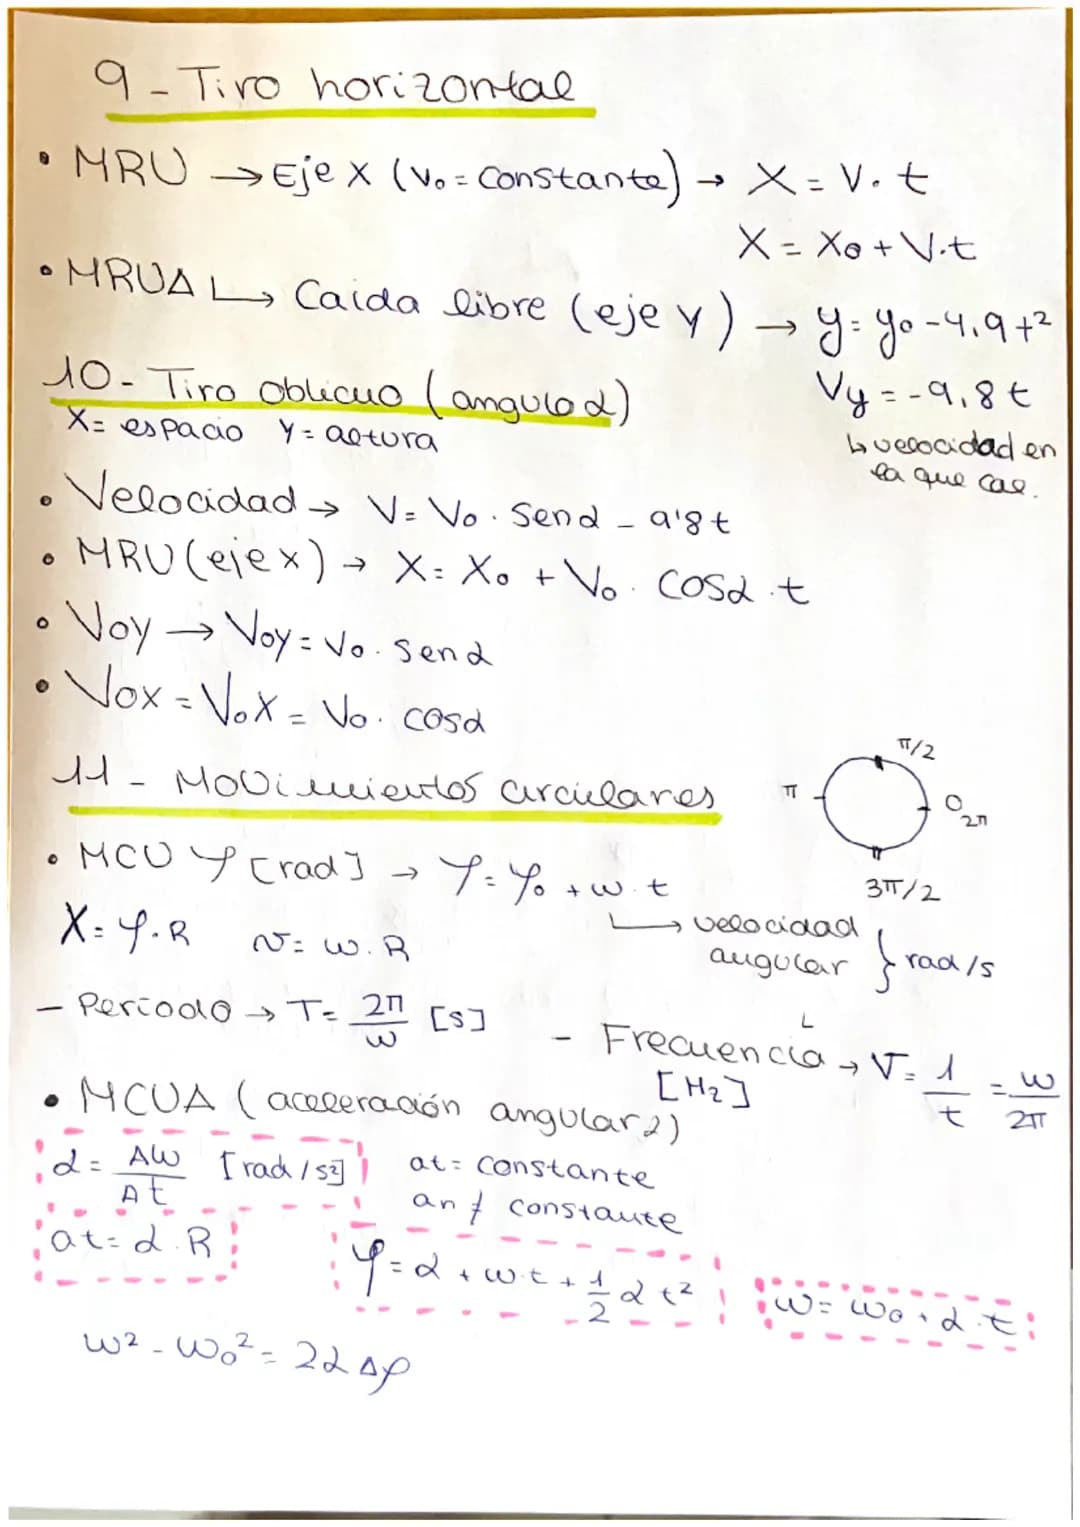 9 - Tiro horizontal
• MRU → Eje X (V₀ = constante) → X = V · t
X = X₀ + V·t
• MRUA ↳ Caida libre (eje y) → y = y₀ - 4,9 t²
Vy = -9,8 t
↳ velocidad en
la que cae.
10 - Tiro oblicuo (angulo α)
X = espacio Y = altura
• Velocidad → V = V₀ · Senα - 9'8t
• MRU (eje x) → X = X₀ + V₀ · COSα · t
• Voy → Voy = V₀ · Senα
• Vox = V₀X = V₀ · cosα
11 - Movimientos circulares
π/2
π
0
2π
3π/2
• MCU φ [rad] → φ = φ₀ + w · t
↳ velocidad
angular } rad/s
X = φ · R v = w · R
- Periodo → T = 2π/w [s]
- Frecuencia → V = 1/t = w/2π
[Hz]
• MCUA (aceleración angular α)
α = Δw/Δt [rad/s²]
at = constante
an ≠ constante
at = α · R
φ = α + w·t + 1/2 α t²
w = w₀ + α · t
w² - w₀² = 2α Δφ